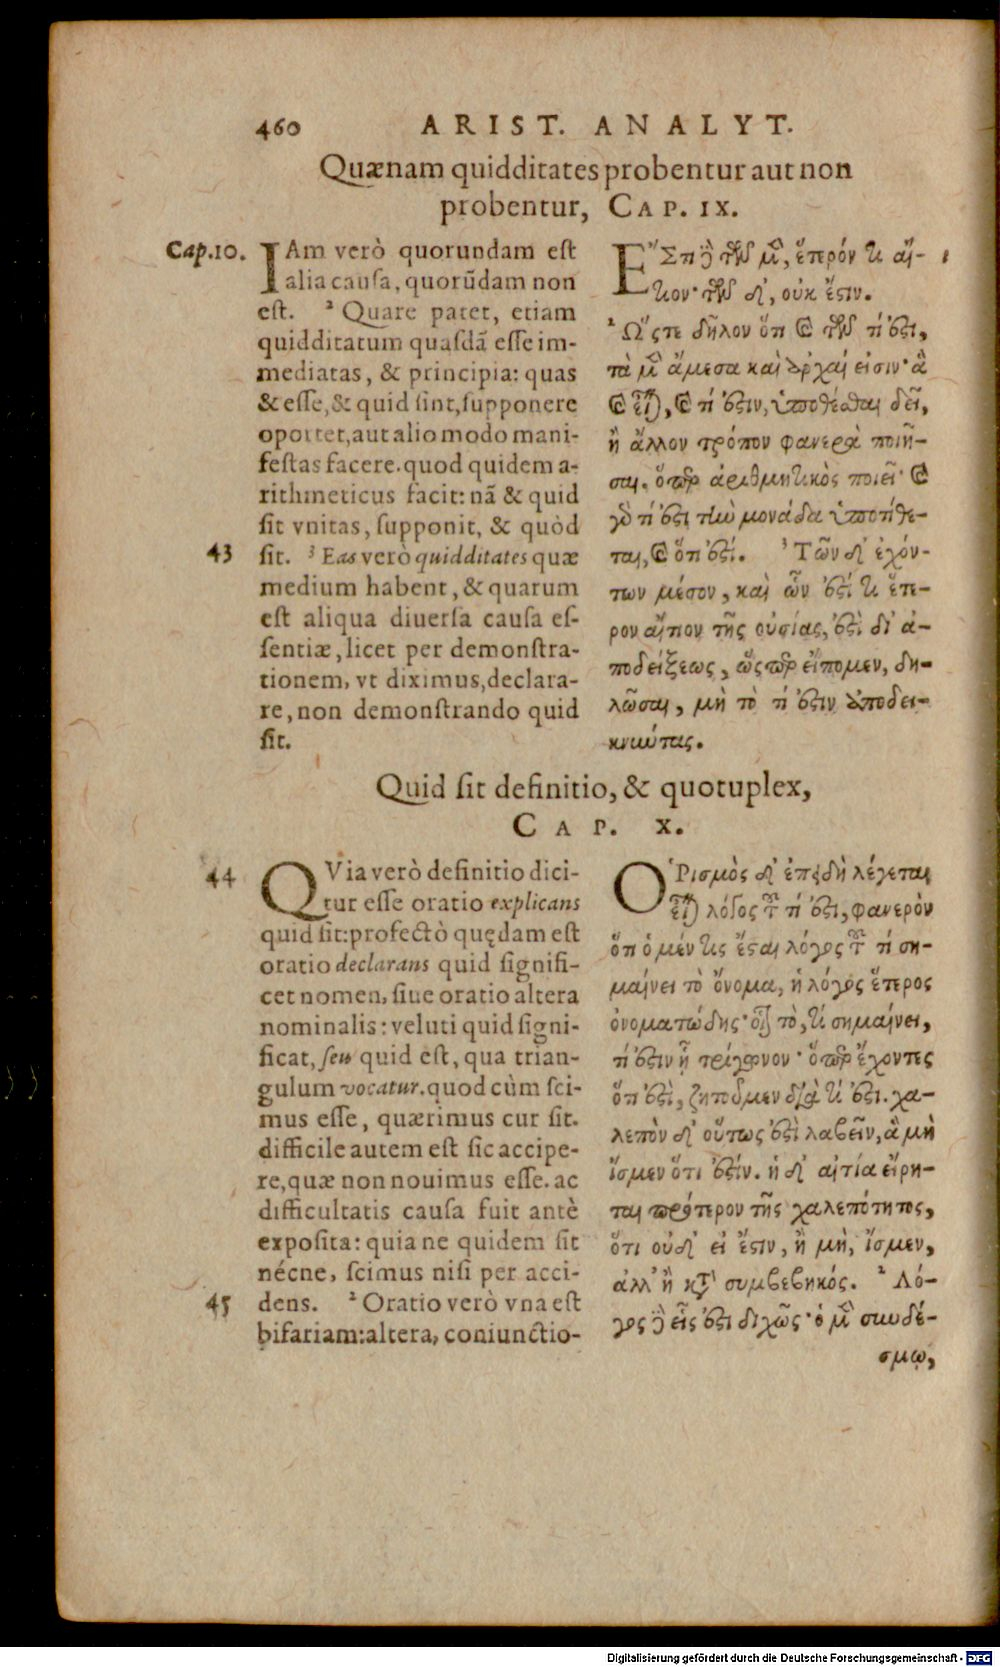 460 ARIST. ANALYT.
Quænam quidditates probentur aut non
probentur, CAP. IX.
Cap.10.
IAm verò quorundam est
alia causa, quorūdam non
est. ² Quare patet, etiam
quidditatum quasdā esse im-
mediatas, & principia: quas
& esse, & quid sint, supponere
oportet, aut alio modo mani-
festas facere. quod quidem a-
rithmeticus facit: nā & quid
sit vnitas, supponit, & quòd
43
sit. ³ Eas verò quidditates quæ
medium habent, & quarum
est aliqua diuersa causa es-
sentiæ, licet per demonstra-
tionem, vt diximus, declara-
re, non demonstrando quid
sit.
Ἔστι δὲ τῶν μὲν, ἕτερόν τι αἴ- ¹
τιον· τῶν δ', οὐκ ἔστιν.
² Ὥστε δῆλον ὅτι καὶ τῶν τί ἐστι,
τὰ μὲν ἄμεσα καὶ ἀρχαί εἰσιν· ἃ
καὶ εἶναι, καὶ τί ἐστιν, ὑποθέσθαι δεῖ,
ἢ ἄλλον τρόπον φανερὰ ποιῆ-
σαι. ὅπερ ἀριθμητικὸς ποιεῖ· καὶ
γὰρ τί ἐστι τὴν μονάδα ὑποτίθε-
ται, καὶ ὅτι ἐστί. ³ Τῶν δ' ἐχόν-
των μέσον, καὶ ὧν ἐστί τι ἕτε-
ρον αἴτιον τῆς οὐσίας, ἐστὶ δι' ἀ-
ποδείξεως, ὥσπερ εἴπομεν, δη-
λῶσαι, μὴ τὸ τί ἐστιν ἀποδει-
κνύντας.
Quid sit definitio, & quotuplex,
CAP. X.
44
QVia verò definitio dici-
tur esse oratio explicans
quid sit: profectò quędam est
oratio declarans quid signifi-
cet nomen, siue oratio altera
nominalis: veluti quid signi-
ficat, seu quid est, qua trian-
gulum vocatur. quod cùm sci-
mus esse, quærimus cur sit.
difficile autem est sic accipe-
re, quæ non nouimus esse. ac
difficultatis causa fuit antè
exposita: quia ne quidem sit
nécne, scimus nisi per acci-
45
dens. ² Oratio verò vna est
bifariam: altera, coniunctio-
Ὁρισμὸς δ' ἐπειδὴ λέγεται
εἶναι λόγος τοῦ τί ἐστι, φανερὸν
ὅτι ὁ μέν τις ἔσται λόγος τοῦ τί ση-
μαίνει τὸ ὄνομα, ἢ λόγος ἕτερος
ὀνοματώδης· οἷον τὸ, τί σημαίνει,
τί ἐστιν ᾗ τρίγωνον· ὅπερ ἔχοντες
ὅτι ἐστὶ, ζητοῦμεν διὰ τί ἐστι. χα-
λεπὸν δ' οὕτως ἐστὶ λαβεῖν, ἃ μὴ
ἴσμεν ὅτι ἐστίν. ἡ δ' αἰτία εἴρη-
ται πρότερον τῆς χαλεπότητος,
ὅτι οὐδ' εἰ ἔστιν, ἢ μὴ, ἴσμεν,
ἀλλ' ἢ κατὰ συμβεβηκός. ² Λό-
γος δὲ εἷς ἐστι διχῶς· ὁ μὲν συνδέ-
σμῳ,
Digitalisierung gefördert durch die Deutsche Forschungsgemeinschaft - DFG